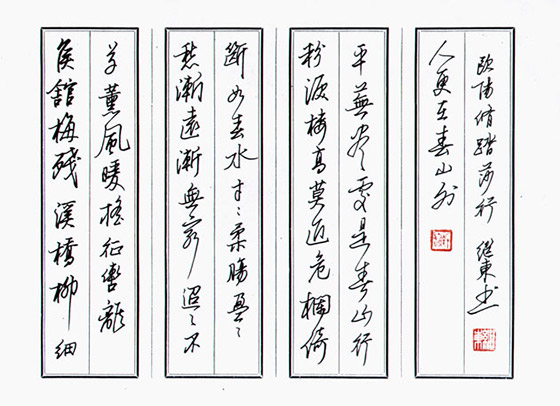 侯舘梅殘溪橋柳細
草薰風暖摇征轡離
愁漸遠漸無窮迢々不
斷如春水寸々柔腸盈々
粉淚楼高莫近危欄倚
平蕪尽處是春山行
人更在春山外
欧陽修踏莎行 继東书